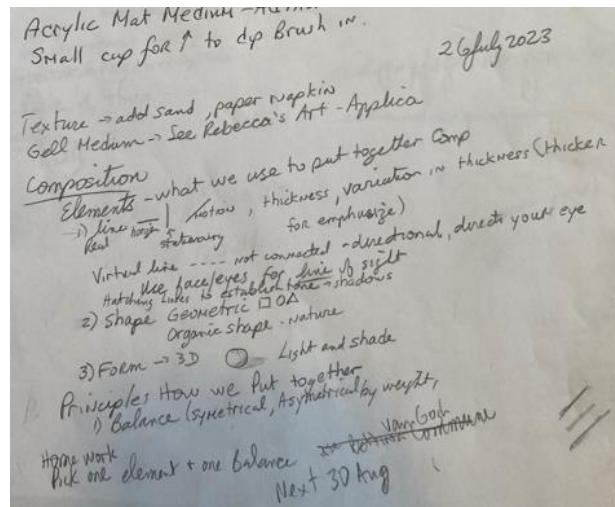 Acrylic Mat Medium
Small cup for ↑ to dip Brush in.
26 July 2023
Texture → add sand, paper napkin
Gell Medium → See Rebecca's Art - Applica
Composition
Elements - what we use to put together Comp
1) line | motion, thickness, variation in thickness (thicker
Real stationary for emphasize)
Virtual line ---- not connected - directional, directs your eye
Use face/eyes for line of sight
Hatching lines to establish tone → shadows
2) Shape Geometric □ O △
Organic shape - nature
3) Form → 3D Light and shade
Principles How we Put together
1) Balance (symetrical, Asymetrical by weight,
Home work
Pick one element + one balance
Next 30 Aug